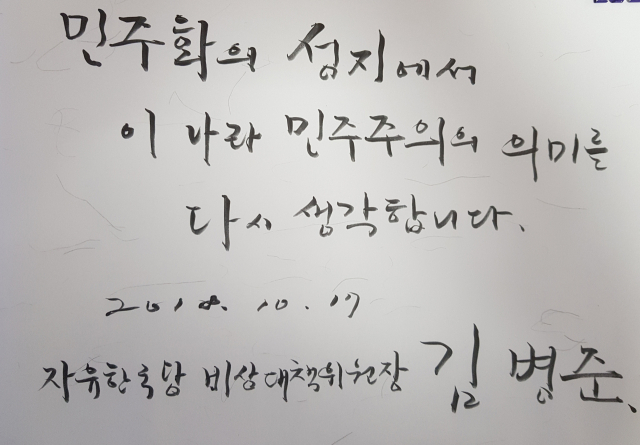 민주화의 성지에서
이 나라 민주주의의 의미를
다시 생각합니다.
2018. 10. 17
자유한국당 비상대책위원장 김병준.